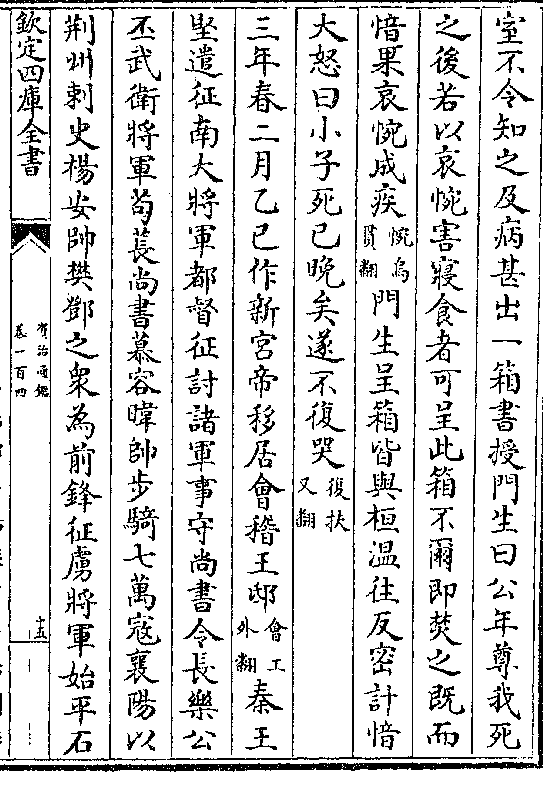 室不令知之及病甚出一箱書授門生曰公年尊我死
之後若以哀惋害寢食者可呈此箱不爾即焚之既而
愔果哀惋成疾惋烏貫翻門生呈箱皆與桓温往反密計愔
大怒曰小子死已晚矣遂不復哭復扶又翻
三年春二月乙巳作新宮帝移居會稽王邸會工外翻秦王
堅遣征南大將軍都督征討諸軍事守尚書令長樂公
丕武衛將軍苟萇尚書慕容暐帥步騎七萬寇襄陽以
荆州刺史楊安帥樊鄧之衆為前鋒征虜將軍始平石
欽定四庫全書
資治通鑑
卷一百四
十五